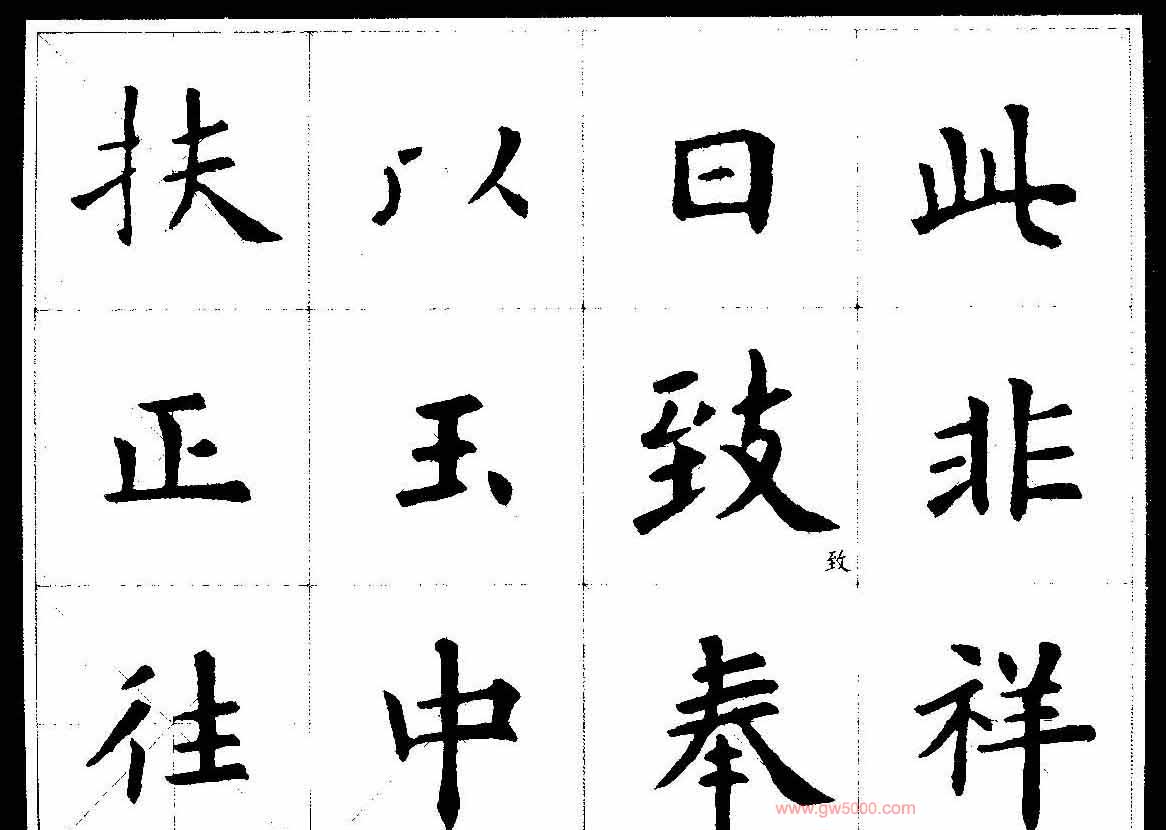 此非祥
日致致奉
以玉中
扶正往
www.gw5000.com